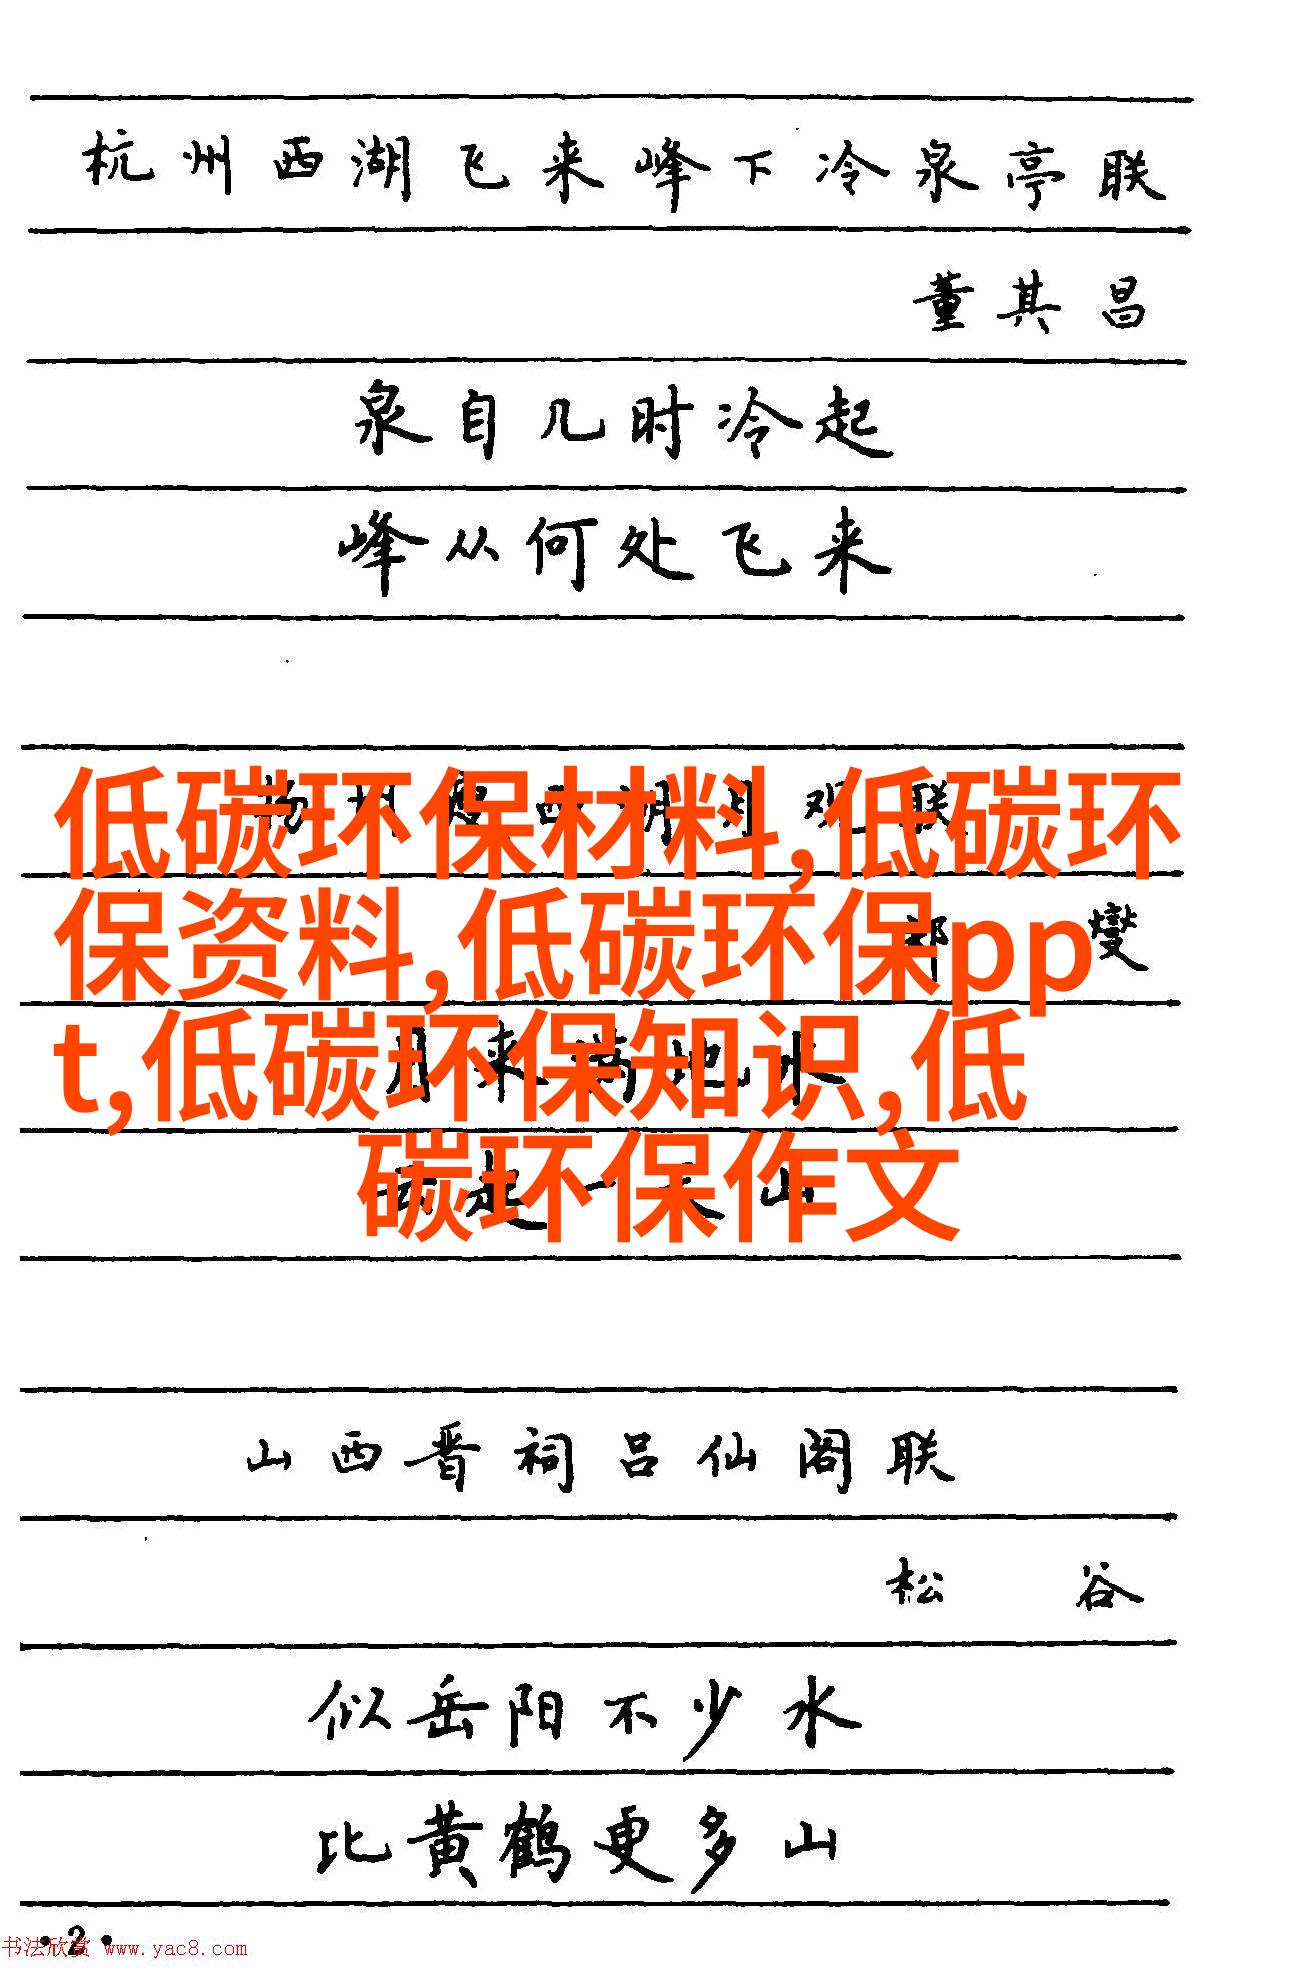 杭州西湖飞来峰下冷泉亭联
董其昌
泉自几时冷起
峰从何处飞来
低碳环保材料,低碳环
保资料,低碳环保pp
t,低碳环保知识,低
碳环保作文
西湖月观联
燮
月来满地水
云起一天山
山西晋祠吕仙阁联
松谷
似岳阳不少水
比黄鹤更多山
·2·
书法欣赏 www.yac8.com